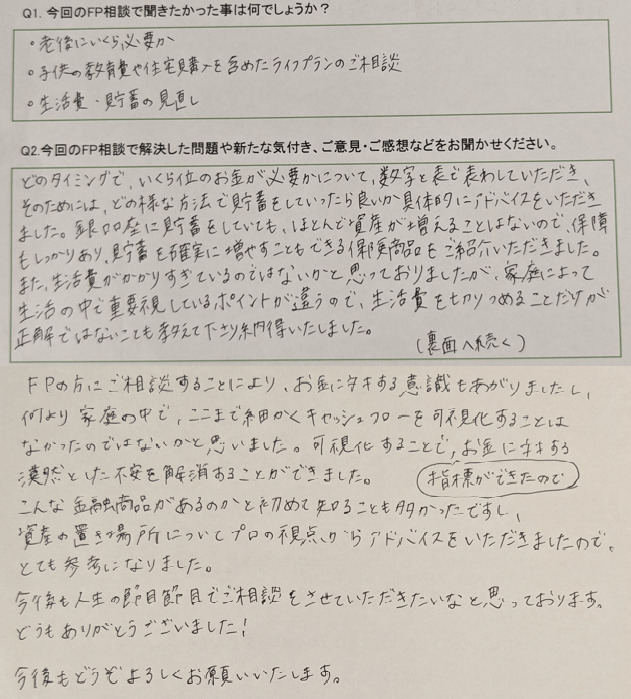 Q1. 今回のFP相談で聞きたかった事は何でしょうか？
・老後にいくら必要か
・子供の教育費や住宅購入を含めたライフプランのご相談
・生活費・貯蓄の見直し
Q2.今回のFP相談で解決した問題や新たな気付き、ご意見・ご感想などをお聞かせください。
どのタイミングで、いくら位のお金が必要かについて、数字と表で表わしていただき、
そのためには、どの様な方法で貯蓄をしていったら良いか具体的にアドバイスをいただき
ました。銀口座に貯蓄をしていても、ほとんど資産が増えることはないので、保障
もしっかりあり、貯蓄を確実に増やすこともできる保険商品をご紹介いただきました。
また、生活費がかかりすぎているのではないかと思っておりましたが、家庭によって
生活の中で重要視しているポイントが違うので、生活費を切りつめることだけが
正解ではないことも教えて下さり納得いたしました。
(裏面へ続く)
FPの方にご相談することにより、お金に対する意識もあがりましたし、
何より家庭の中で、ここまで細かくキャッシュフローを可視化することは
なかったのではないかと思いました。可視化することで、お金に対する
漠然とした不安を解消することができました。 指標ができたので
こんな金融商品があるのかと初めて知ることも多かったですし、
資産の置き場所についてプロの視点からアドバイスをいただきましたので、
とても参考になりました。
今後も人生の節目節目でご相談をさせていただきたいなと思っております。
どうもありがとうございました！
今後もどうぞよろしくお願いいたします。